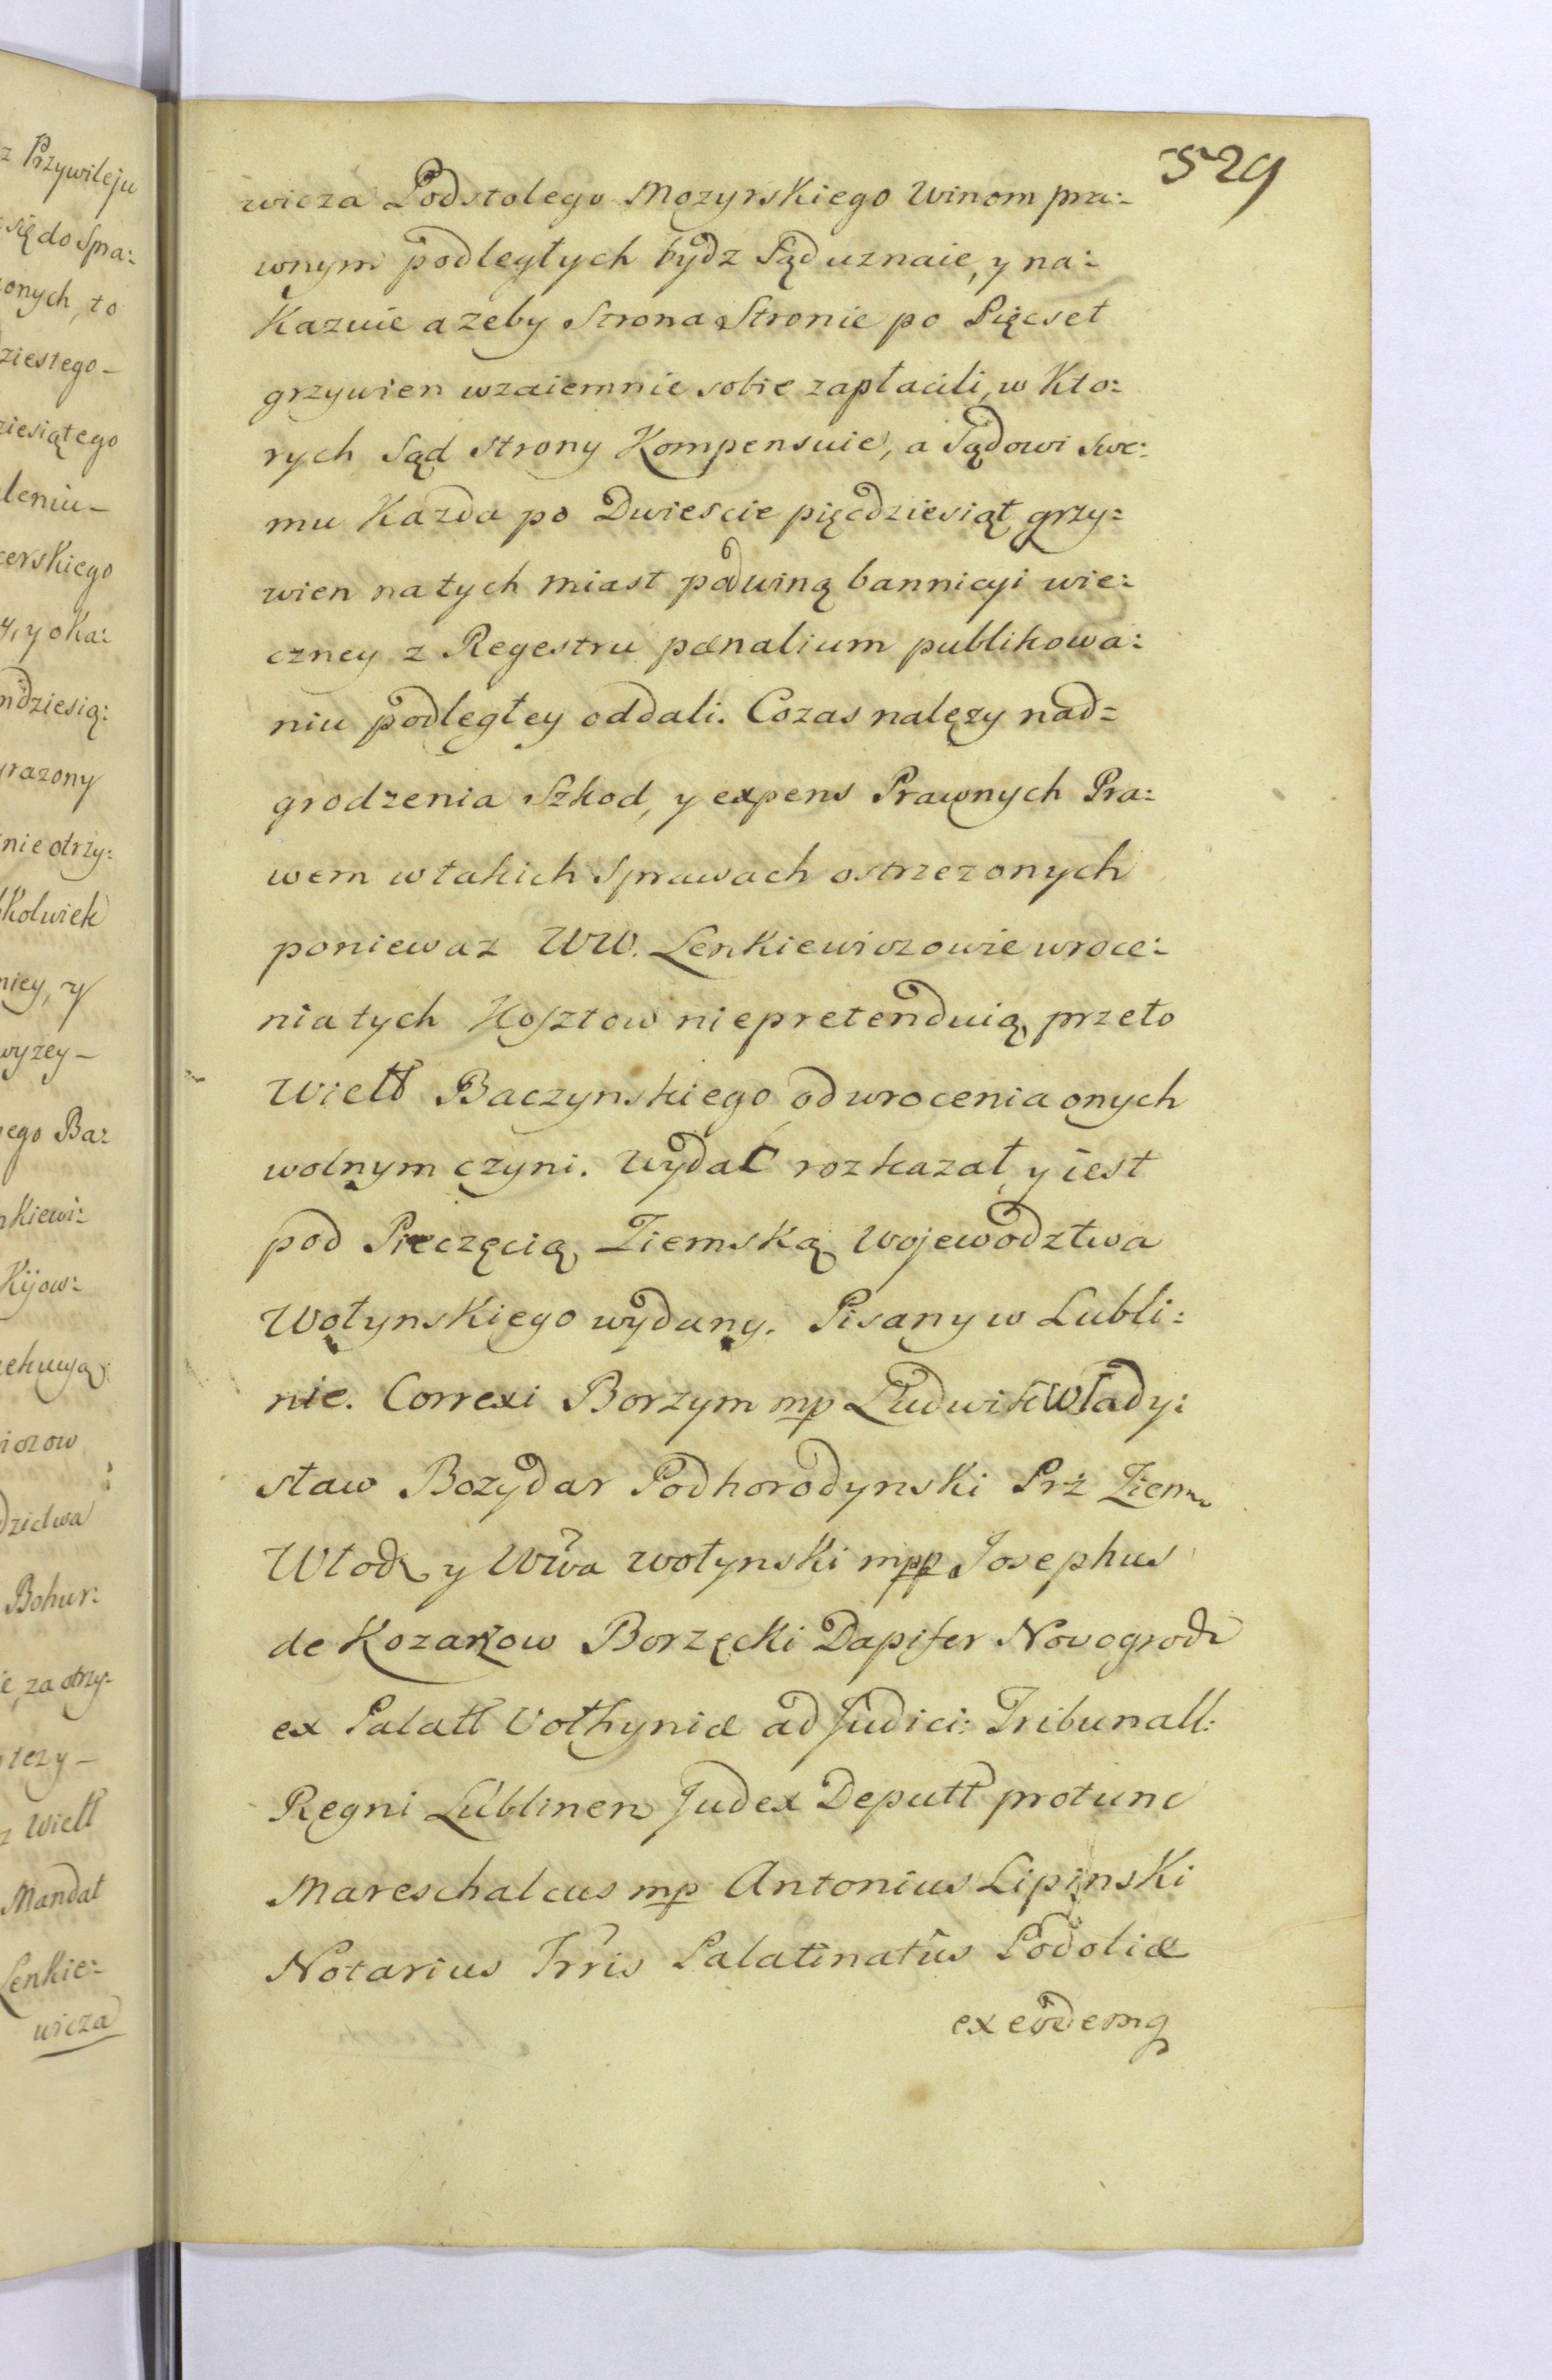 z Przywileju
się do Spra:
onych, to
ziestego_
ziesiątego
leniu_
cerskiego
4, y oka:
mdziesią:
yrazony
nie otrzy:
kolwiek
niey, y
wyzey_
nego Ba:
nkiewi:
Kijow:
iczow
dzictwa
Bohur:
ie, za otrzy:
tezy_
z Wiell
Mandat
Lenkie:
wicza
529
wicza Podstolego Mozyrskiego Winom pra:
wnym podległych bydz Sąd uznaie, y na:
Kazuie azeby Strona Stronie po Pięcset
grzywien wzaiemnie sobie zapłacili, w Kto:
rych Sąd Strony Kompensuie, a Sądowi Swe:
mu Kazda po Dwiescie pięcdziesiąt grzy:
wien natych miast podwiną bannicyi wie:
czney z Regestru pænalium publikowa:
niu podległey oddali. Cozas nalęzy nad=
grodzenia Szkod, y expens Prawnych Pra:
wem w takich Sprawach ostrzezonych
poniewaz WW. Lenkiewiczowie wroce:
nia tych Kosztow niepretenduią, przeto
Wiell Baczynskiego od wrocenia onych
wolnym czyni. Wydać rozkazał, y iest
pod Pieczęcią Ziemską Wojewodztwa
Wołynskiego wydany. Pisany w Lubli:
nie. Correxi Borzym mp Ludwik Włady:
sław Bozydar Podhorodynski Prż Ziem
Włodz y Wwa Wołynski mpp Josephus
de Kozarzow Borzęcki Dapifer Novogrodz
ex Palatt Volhyniæ ad Judici: Tribunall:
Regni Lublinen Judex Deputt protunc
Mareschalcus mp Antonius Lipinski
Notarius Trris Palatinatûs Podoliæ
ex eôdemq